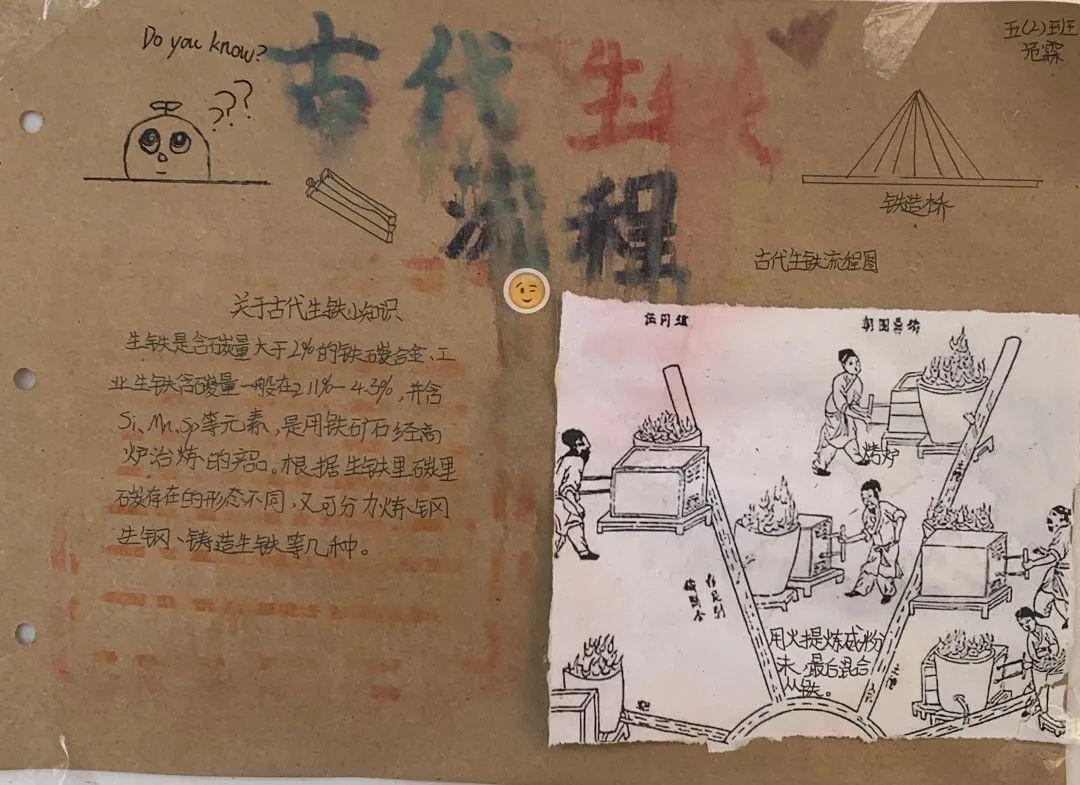 Do you know?
???
古代生铁
流程
五(2)班
危霖
铁造桥
古代生铁流程图
关于古代生铁小知识
生铁是含碳量大于2%的铁碳合金、工
业生铁含碳量一般在2.11%-4.3%,并含
Si、Mn、Sp等元素,是用铁矿石经高
炉冶炼的产品。根据生铁里碳里
碳存在的形态不同,又可分力炼钢
生钢、铸造生铁等几种。
烤炉
用火提炼成粉
末、最后混合
从铁。